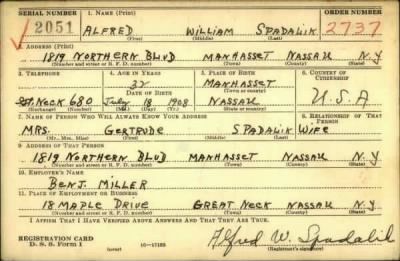 SERIAL NUMBER 1. NAME (Print) ORDER NUMBER
2051 ALFRED WILLIAM SPADALIK 2737
(First) (Middle) (Last)
2. ADDRESS (Print)
1819 NORTHERN BLVD MANHASSET NASSAU N.Y
(Number and street or R. F. D. number) (Town) (County) (State)
3. TELEPHONE 4. AGE IN YEARS 5. PLACE OF BIRTH 6. COUNTRY OF CITIZENSHIP
32 MANHASSET
DATE OF BIRTH (Town or county)
Gt. NECK 680 July 18 1908 NASSAU U.S.A
(Exchange) (Number) (Mo.) (Day) (Yr.) (State or country)
7. NAME OF PERSON WHO WILL ALWAYS KNOW YOUR ADDRESS 8. RELATIONSHIP OF THAT PERSON
MRS. GERTRUDE SPADALIK WIFE
(Mr., Mrs., Miss) (First) (Middle) (Last)
9. ADDRESS OF THAT PERSON
1819 NORTHERN BLVD MANHASSET NASSAU N.Y
(Number and street or R. F. D. number) (Town) (County) (State)
10. EMPLOYER'S NAME
BENJ. MILLER
11. PLACE OF EMPLOYMENT OR BUSINESS
18 MAPLE DRIVE GREAT NECK NASSAU N.Y
(Number and street or R. F. D. number) (Town) (County) (State)
I AFFIRM THAT I HAVE VERIFIED ABOVE ANSWERS AND THAT THEY ARE TRUE.
REGISTRATION CARD
D. S. S. Form 1 (over) 16-17105 Alfred W. Spadalik